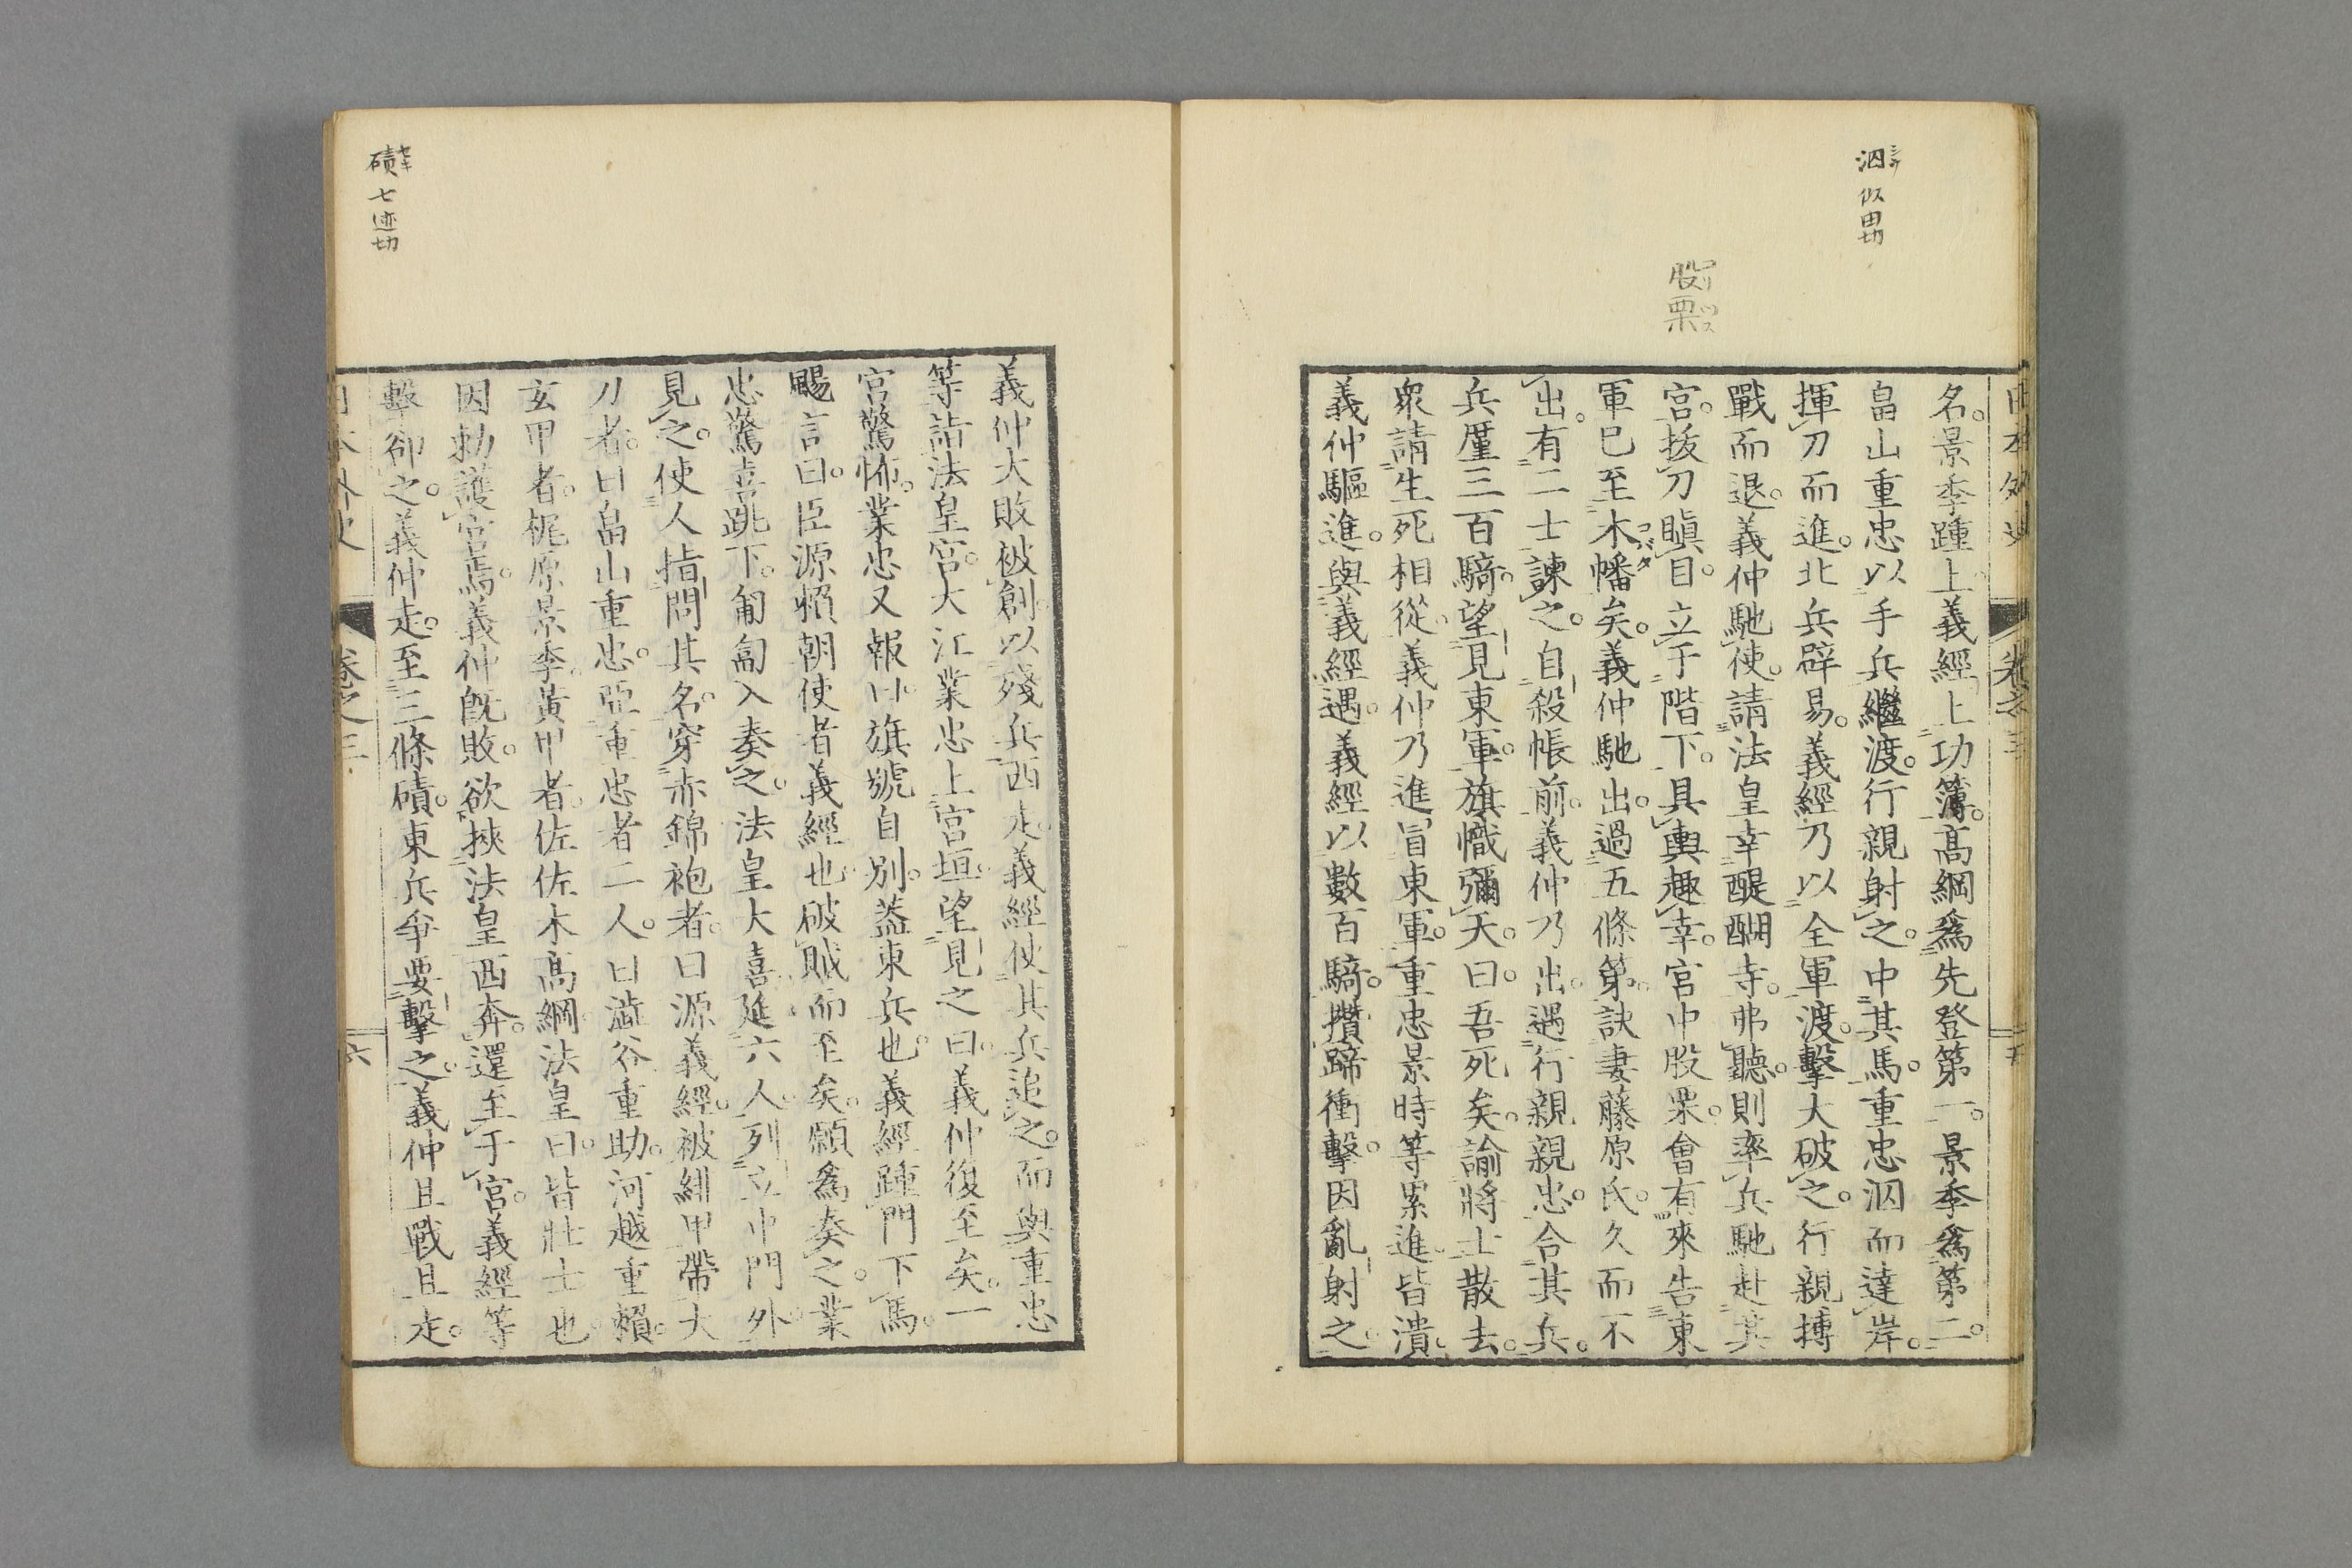 泅 似由切
シウ
股栗
日本外史 卷之三 五
名。景季踵上。義經上功簿。高綱爲先登第一。景季爲第二。
畠山重忠以手兵繼渡。行親射之。中其馬。重忠泅而達岸。
揮刀而進。北兵辟易。義經乃以全軍渡。擊大破之。行親搏
戰而退。義仲馳使。請法皇幸醍醐寺。弗聽。則率兵馳赴其
宮。拔刀瞋目。立于階下。具輿趣幸。宮中股栗。會有來告東
軍已至木幡矣。義仲馳出。過五條第。訣妻藤原氏。久而不
コバタ
出。有二士諫之。自殺帳前。義仲乃出。遇行親親忠。合其兵。
兵厪三百騎。望見東軍。旗幟彌天。曰。吾死矣。諭將士散去。
衆請生死相從。義仲乃進冒東軍。重忠景時等累進皆潰。
義仲驅進。與義經遇。義經以數百騎。攢蹄衝擊。因亂射之。
磧 七迹切
セキ
義仲大敗被創。以殘兵西走。義經使其兵追之。而與重忠
等詣法皇宮。大江業忠上宮垣。望見之曰。義仲復至矣。一
宮驚怖。業忠又報曰。旗號自別。蓋東兵也。義經踵門下馬。
颺言曰。臣源賴朝使者義經也。破賊而至矣。願爲奏之。業
忠驚喜跳下。匍匐入奏之。法皇大喜。延六人。列立中門外。
見之。使人指問其名。穿赤錦袍者。曰源義經。被緋甲帶大
刀者。曰畠山重忠。亞重忠者二人。曰澁谷重助。河越重賴。
玄甲者。梶原景季。黃甲者。佐佐木高綱。法皇曰。皆壯士也。
因勅護宮焉。義仲旣敗。欲挾法皇西奔。還至于宮。義經等
擊卻之。義仲走。至三條磧。東兵爭要擊之。義仲且戰且走。
日本外史 卷之三 六